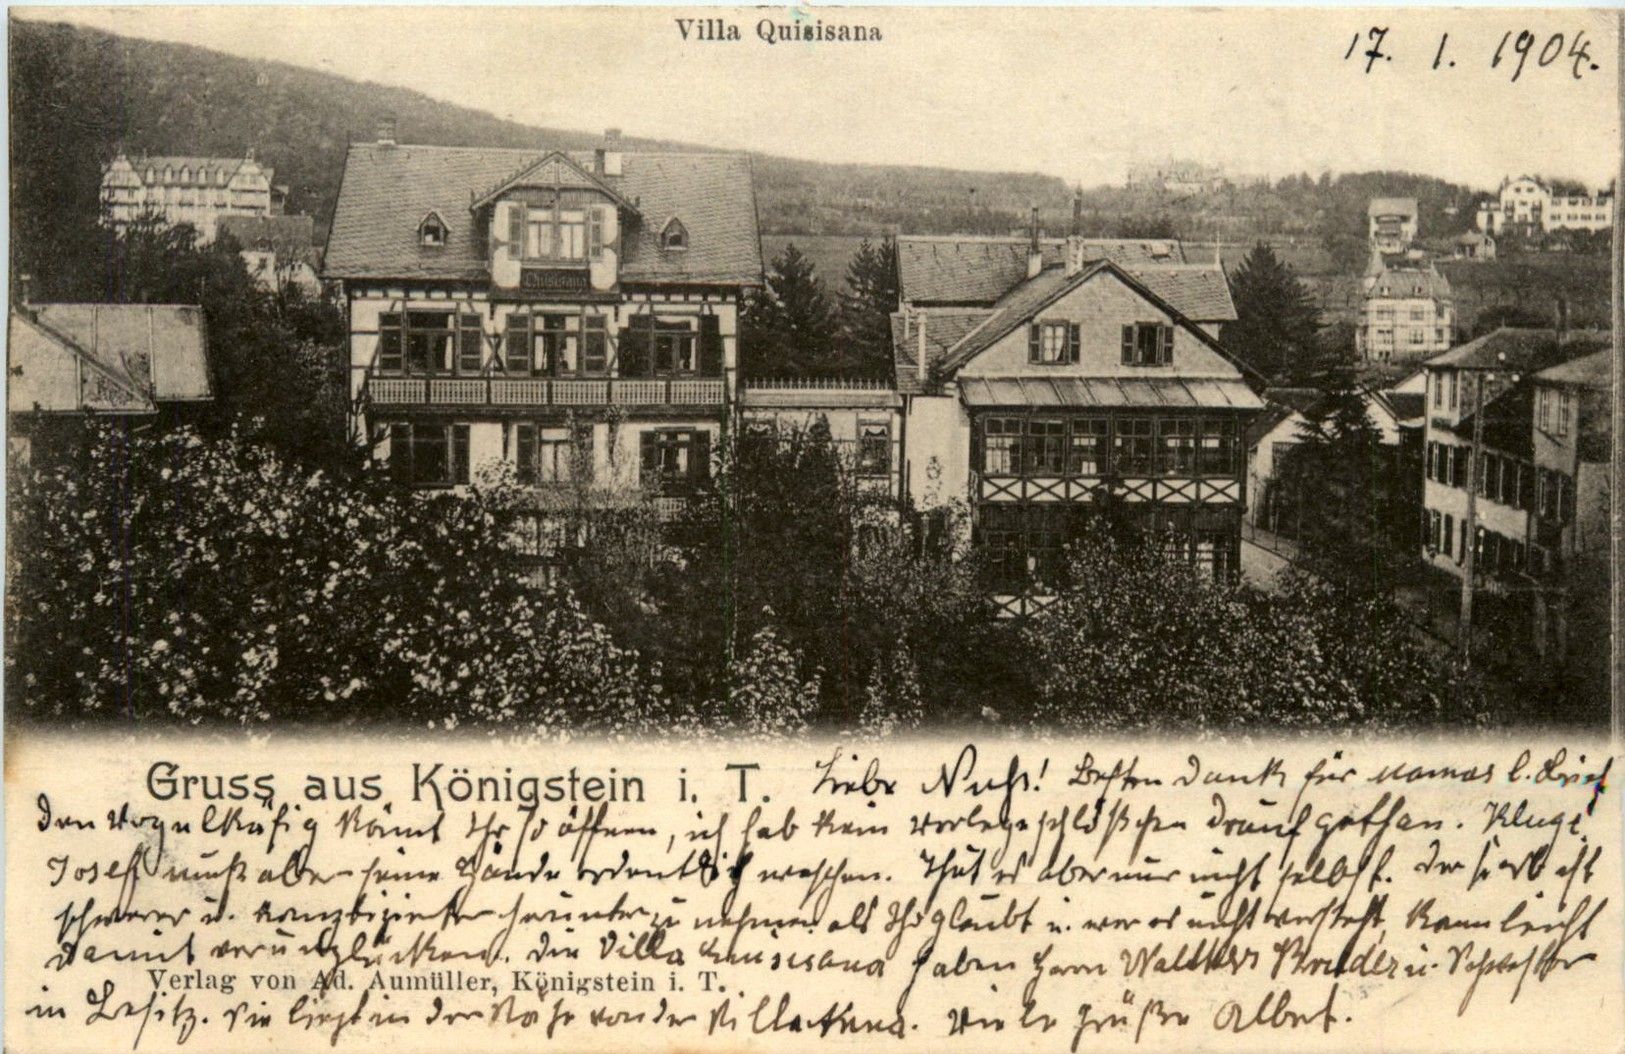 Villa Quisisana
17. 1. 1904.
Quisisana
Gruss aus Königstein i. T.
Liebe Besten Dank für Mamas l. Brief
den Vogelkäfig könnt Ihr so öffnen, ich hab kein Vorlegeschlößchen drauf gethan. Kluge
Josef muß aber seine Hände ordentlich waschen. Thut es aber nur nicht selbst. Der ist
schwerer u. herunter zu nehmen als Ihr glaubt u. wer es nicht versteht, kann leicht
damit verunglücken. Die Villa Quisisana haben Herrn Walthers Bruder u. Schwester
Verlag von Ad. Aumüller, Königstein i. T.
in Besitz. Sie liegt in der Nähe von der Villa Anna. Viele Grüße Albert.